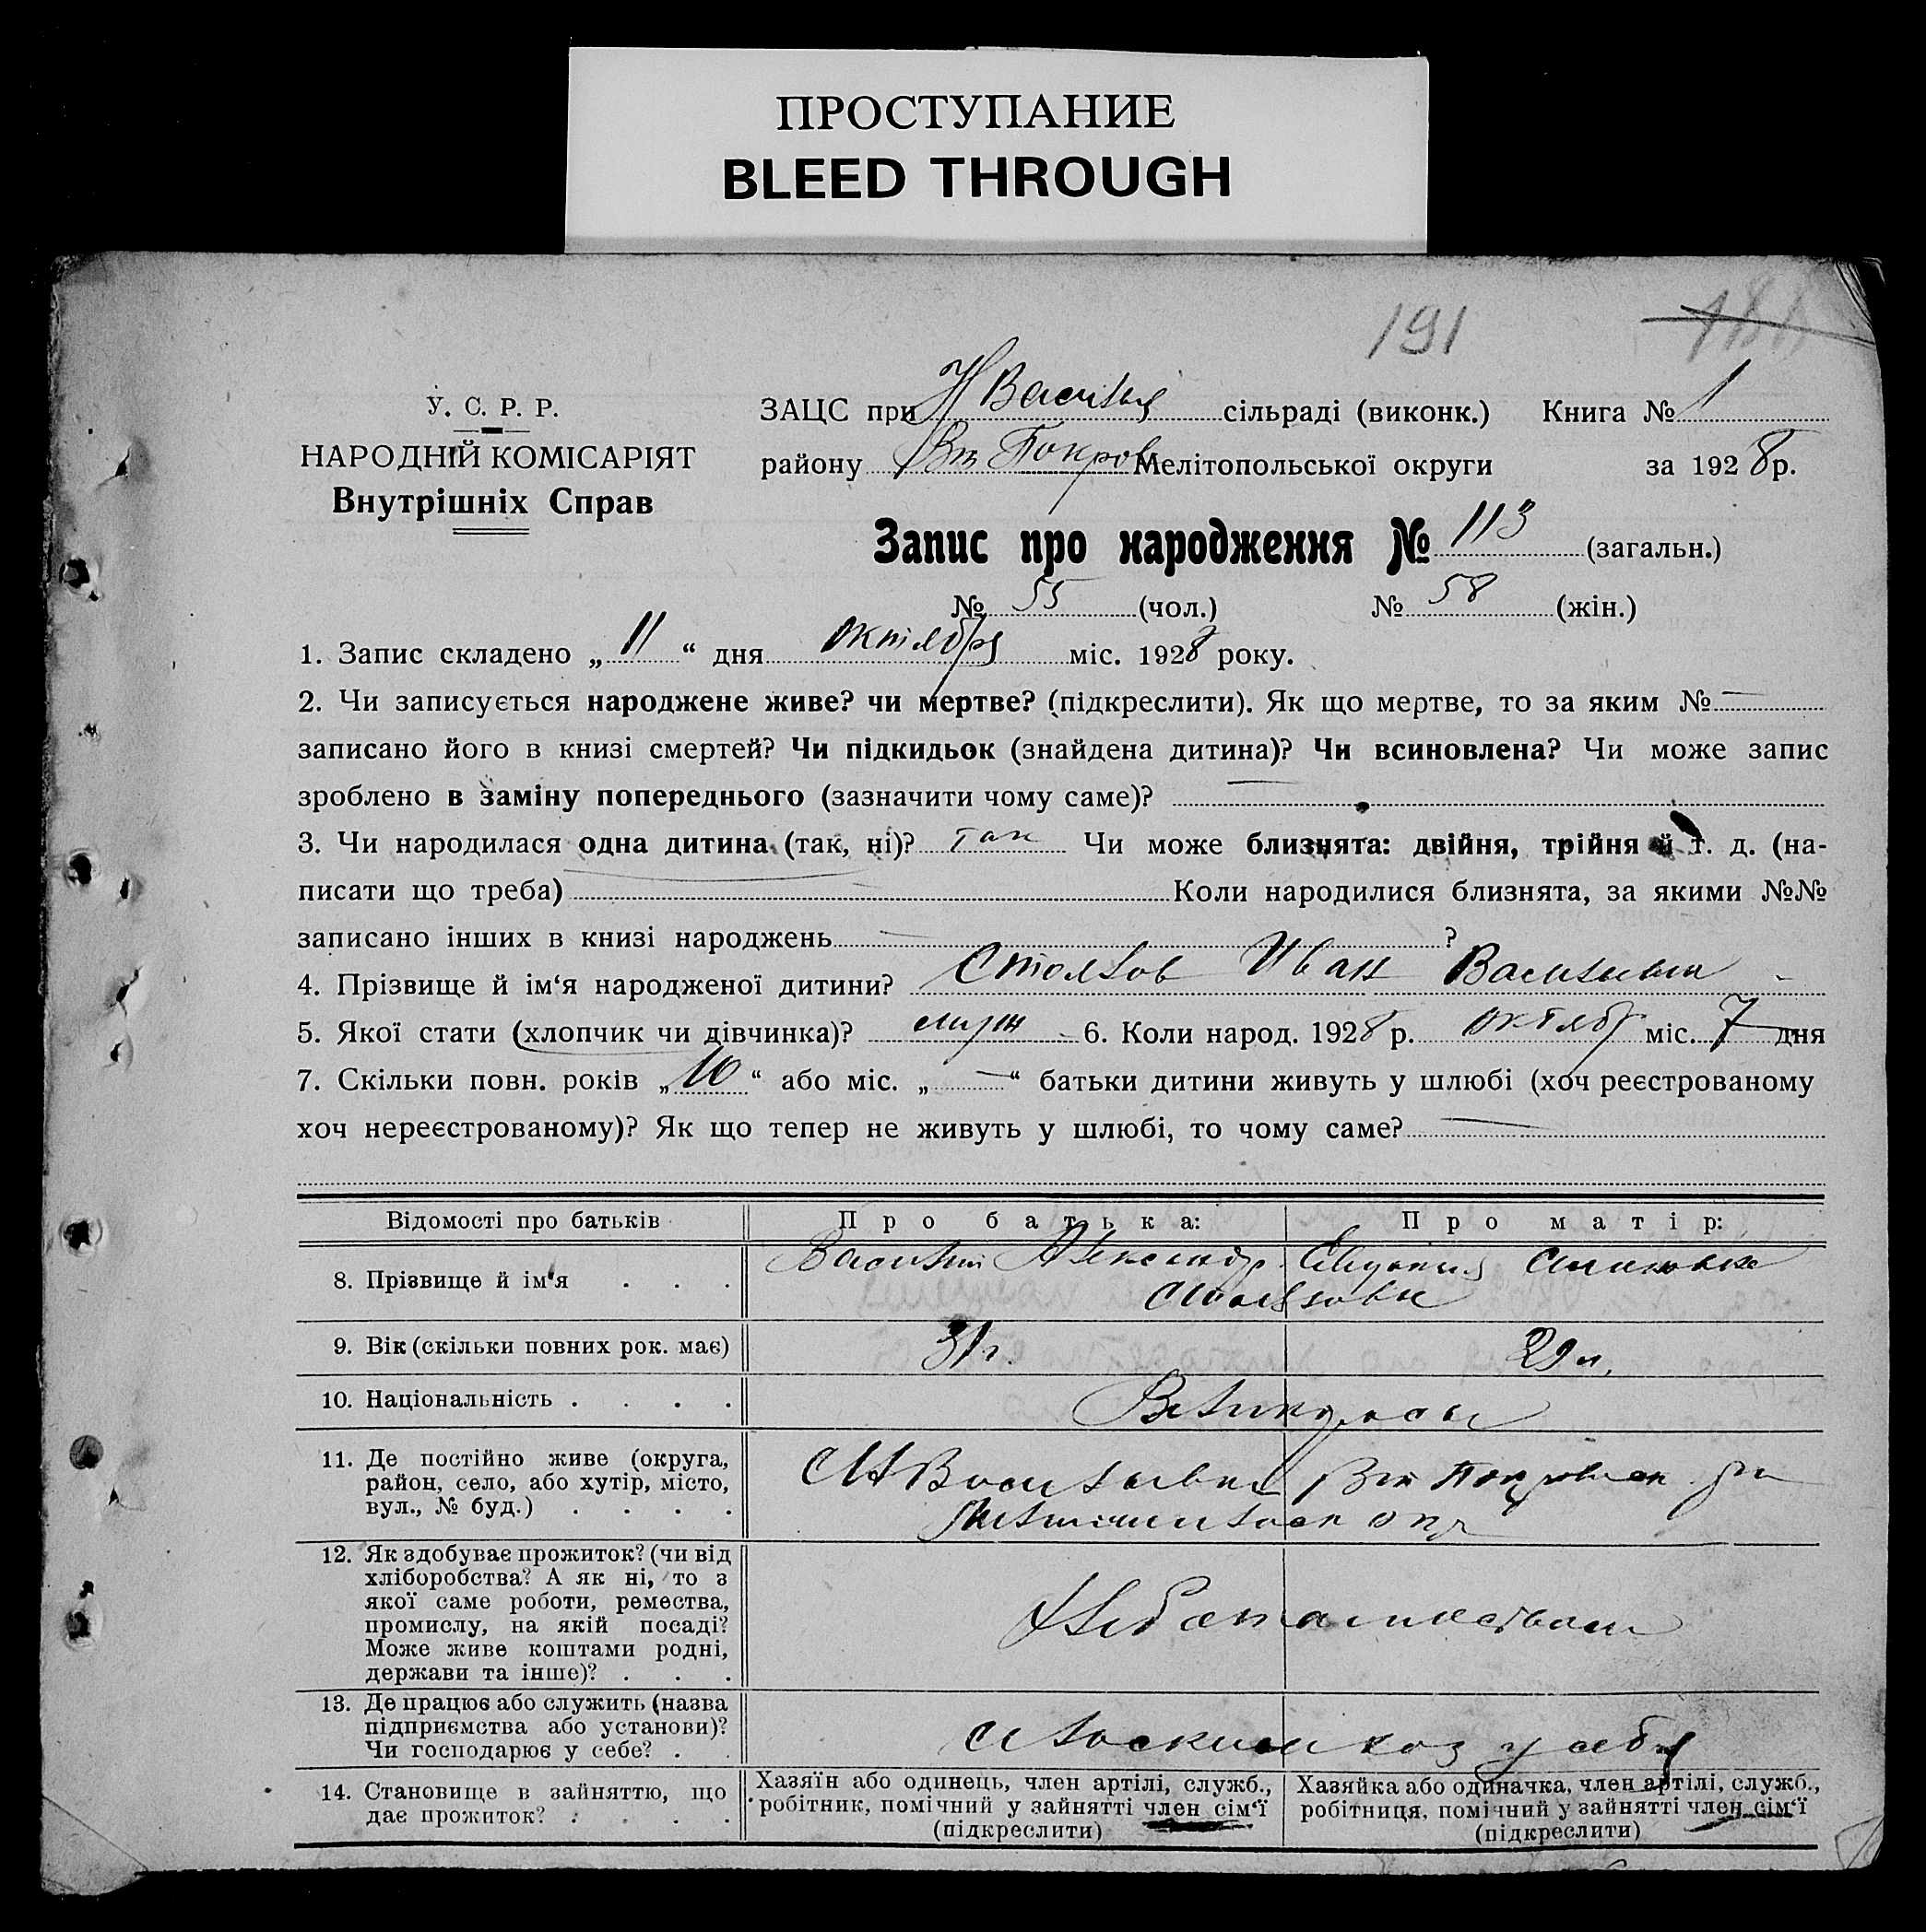 ПРОСТУПАНИЕ
BLEED THROUGH
191
У. С. Р. Р.
НАРОДНІЙ КОМІСАРІЯТ
Внутрішніх Справ
ЗАЦС при Н Василья сільраді (виконк.) Книга № 1
району Вт Покров Мелітопольської округи за 1928 р.
Запис про народження № 113 (загальн.)
№ 55 (чол.) № 58 (жін.)
1. Запис складено „ 11 “ дня октября міс. 1928 року.
2. Чи записується народжене живе? чи мертве? (підкреслити). Як що мертве, то за яким № —
записано його в книзі смертей? Чи підкидьок (знайдена дитина)? Чи всиновлена? Чи може запис
зроблено в заміну попереднього (зазначити чому саме)? —
3. Чи народилася одна дитина (так, ні)? так Чи може близнята: двійня, трійня й т. д. (на-
писати що треба) — Коли народилися близнята, за якими №№
записано інших в книзі народжень — ?
4. Прізвище й ім‘я народженої дитини? Иван
5. Якої стати (хлопчик чи дівчинка)? муж 6. Коли народ. 1928 р. октябр міс. 7 дня
7. Скільки повн. років „ 10 “ або міс. „ — “ батьки дитини живуть у шлюбі (хоч реєстрованому
хоч нереєстрованому)? Як що тепер не живуть у шлюбі, то чому саме? —
Відомості про батьків Про батька: Про матір:
8. Прізвище й ім‘я . . . Василий Александр.
9. Вік (скільки повних рок. має) 31 г. 29 л.
10. Національність . . . . Великороссы
11. Де постійно живе (округа,
район, село, або хутір, місто,
вул., № буд.) . . . . С Н Васильевка Вт Покровск р-на
Мелитопольск окр
12. Як здобуває прожиток? (чи від
хліборобства? А як ні, то з
якої саме роботи, ремества,
промислу, на якій посаді?
Може живе коштами родні,
держави та інше)? . . . Хлебопашеством
13. Де працює або служить (назва
підприємства або установи)?
Чи господарює у себе? . . сельским хоз у себя
14. Становище в зайняттю, що
дає прожиток? . . . .
Хазяїн або одинець, член артілі, служб.,
робітник, помічний у зайнятті член сім‘ї
(підкреслити)
Хазяйка або одиначка, член артілі, служб.,
робітниця, помічний у зайнятті член сім‘ї
(підкреслити)